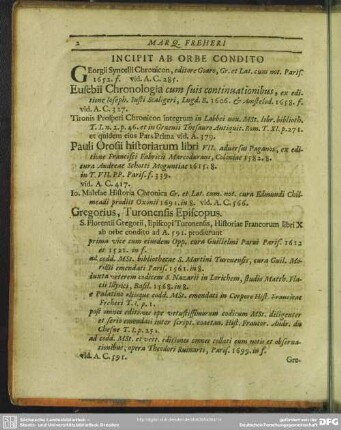 2 MARQ. FREHERI
INCIPIT AB ORBE CONDITO
GEorgii Syncelli Chronicon, editore Goaro, Gr. et Lat. cum not. Paris.
1652. f. vid. A. C. 285.
Eusebii Chronologia cum suis continuationibus, ex edi-
tione Joseph. Justi Scaligeri, Lugd. B. 1606. & Amsteled. 1658. f.
vid. A. C. 327.
Tironis Prosperi Chronicon integrum in Labbei nov. MSt. libr. biblioth.
T. I. n. 2. p. 46. et in Graevii Thesauro Antiquit. Rom. T. XI. p. 271.
et quidem eius Pars Prima vid. A. 379.
Pauli Orosii historiarum libri VII. adversus Paganos, ex edi-
tione Francisci Fabricii Marcodurani, Coloniae 1582. 8.
cura Andreae Schotti Moguntiae 1615. 8.
in T. VII. PP. Paris. f. 339.
vid. A. C. 417.
Io. Malelae Historia Chronica Gr. et Lat. cum not. cura Edmundi Chil-
meadi prodiit Oxonii 1691. in 8. vid. A. C. 566.
Gregorius, Turonensis Episcopus.
S. Florentii Gregorii, Episcopi Turonensis, Historiae Francorum libri X
ab orbe condito ad A. 591. prodierunt
prima vice cum eiusdem Opp. cura Guilielmi Parvi Paris. 1512
et 1522. in f.
ad codd. MSt. bibliothecae S. Martini Turonensis, cura Guil. Mo-
relii emendati Paris. 1561. in 8.
iuxta veterem codicem S. Nazarii in Lorichem, studio Matth. Fla-
cii Illyrici, Basil. 1568. in 8.
e Palatino aliisque codd. MSt. emendati in Corpore Hist. Francicae
Freheri T. I. p. 1.
post omnes editiones ope vetustissimorum codicum MSt. diligenter
et serio emendati inter script. coaetan. Hist. Francor. Andr. du
Chesne T. I. p. 251.
ad codd. MSt. et vett. editiones omnes collati cum notis et observa-
tionibus, opera Theodori Ruinarti, Paris. 1699. in f.
vid. A. C. 591.
Gre-